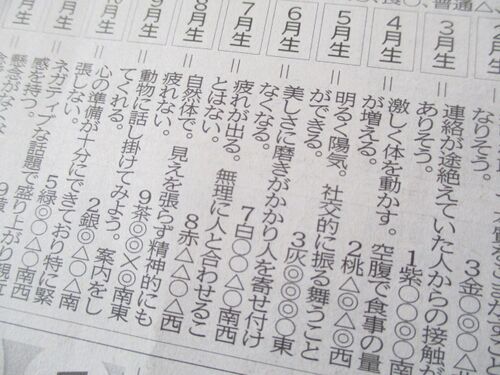 なりそう。　3金◎
3月生＝連絡が途絶えていた人からの接触が
ありそう。　1紫○○◎○南
4月生＝激しく体を動かす。空腹で食事の量
が増える。　2桃△◎△◎西
5月生＝明るく陽気。社交的に振る舞うこと
ができる。　3灰◎◎◎○東
6月生＝美しさに磨きがかかり人を寄せ付け
なくなる。　7白○○△南西
7月生＝疲れが出る。無理に人と合わせるこ
とはない。　8赤△△○△西
8月生＝自然体で。見えを張らず精神的にも
疲れない。　9茶◎◎×◎南東
動物に話し掛けてみよう。案内をし
てくれる。　2銀◎○△△南
心の準備が十分にできており特に緊
張しない。　5緑◎○△○南西
ネガティブな話題で盛り上がり親近
感を持つ。
懸念が